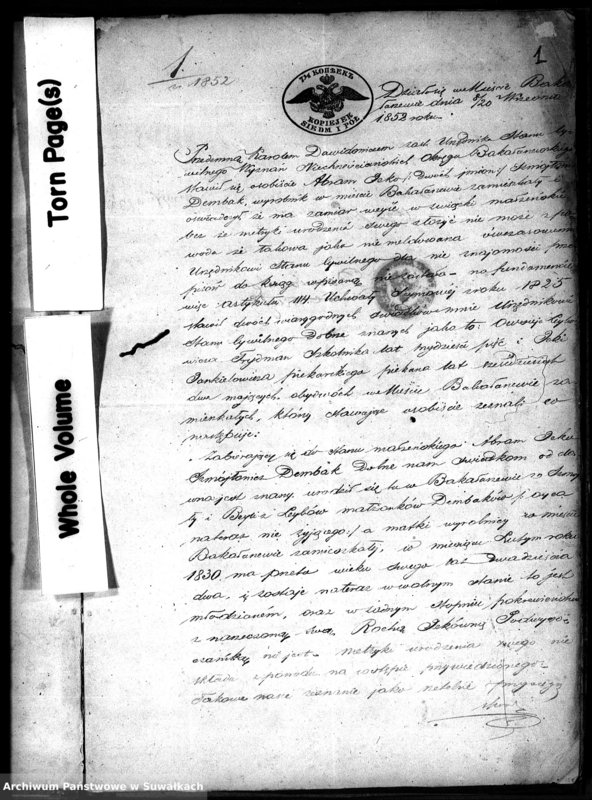 Torn Page(s)
Whole Volume
1.
r. 1852
1
7½ КОПѢЕКЪ
KOPIEJEK
SIEDM I PÓŁ
Działo się w Mieście Baka-
łarzewie dnia 8/20 Września
1852 roku.
Przedemną Karolem Dawidowiczem zast. Urzędnika Stanu Cy-
wilnego Wyznań Niechrześcijańskich Okręgu Bakałarzewskiego
stawił się osobiście Abram Icko /: dwóch imion :/ Szmojłowicz
Dembak, wyrobnik w mieście Bakałarzewie zamieszkały i
oświadczył że ma zamiar wejść w związki małżeńskie
lecz że metryki urodzenia swego złożyć nie może z po-
wodu że takowa jako nie meldowana ówczasowemu
Urzędnikowi Stanu Cywilnego dla nie znajomości prze-
pisów do ksiąg wpisaną nie została — na fundamencie
więc Artykułu 114 Uchwały Sejmowej roku 1825
stawił dwóch wiarygodnych świadków mnie Urzędnikowi
Stanu Cywilnego dobrze znanych jako to
Frydman Szkolnika lat pięćdziesiąt pięć i Icki
Jankielowicza piekarskiego piekarza lat
dwa mających, obydwóch w Mieście Bakałarzewie za-
mieszkałych, którzy stawając osobiście zeznali co
następuje:
Zabierający się do stanu małżeńskiego Abram Icko
Szmojłowicz Dembak dobrze nam świadkom od da-
wna jest znany, urodził się tu w Bakałarzewie z Szmoj-
ły i Bejli z Leybów małżonków Dembaków /: ojca
na teraz nie żyjącego :/ a matki wyrobnicy w mieście
Bakałarzewie zamieszkałej, w miesiącu Lutym roku
1830. ma przeto wieku swego lat dwadzieścia
dwa, i zostaje na teraz w wolnym stanie to jest
młodzianem, oraz w żadnym stopniu pokrewieństwa
z narzeczoną swą Rochą Ickówną
nie jest. Metryki urodzenia swego nie
składa z powodu na wstępie przywiedzionego
Takowe nasze zeznanie jako rzetelne